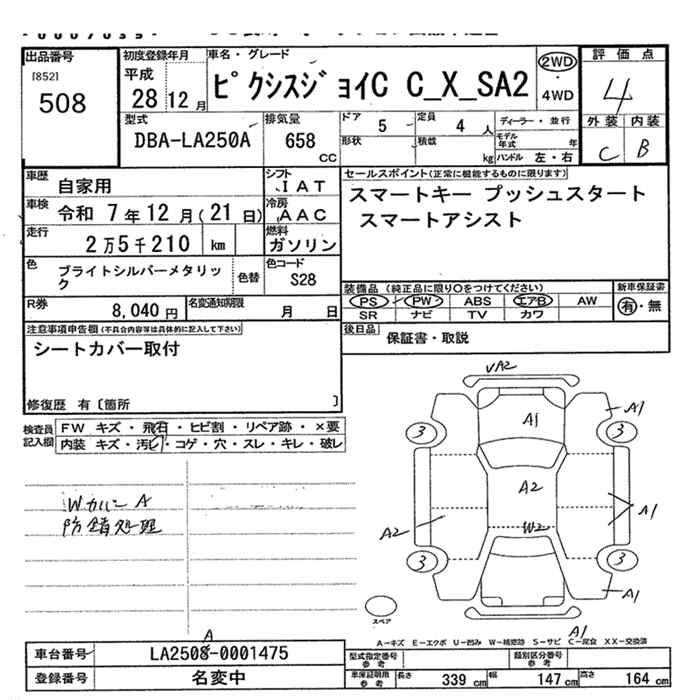 出品番号
[852]
508
初度登録年月
平成
28 12 月
車名・グレード
ピクシスジョイC C_X_SA2
2WD
・
4WD
評価点
4
外装 内装
C B
型式
DBA-LA250A
排気量
658
cc
ドア
5
定員
4 人
形状
積載
kg
ディーラー・並行
モデル
年式
年
ハンドル 左・右
車歴
自家用
シフト
IAT
車検
令和 7年12月(21日)
冷房
AAC
走行
2万5千210 km
燃料
ガソリン
色
ブライトシルバーメタリッ
ク
色替
色コード
S28
R券
8,040 円
名変通知期限
月 日
セールスポイント(正常に機能するものに限ります)
スマートキー プッシュスタート
スマートアシスト
装備品 (純正品に限り○をつけてください)
新車保証書
PS PW ABS エアB AW
有・無
SR ナビ TV カワ
後日品
保証書・取説
注意事項申告欄(不具合内容等は具体的に記入して下さい)
シートカバー取付
修復歴 有〔箇所 〕
検査員
記入欄
FW キズ・飛石・ヒビ割・リペア跡・×要
内装 キズ・汚ビ・コゲ・穴・スレ・キレ・破レ
Wカバー A
防錆処理
VA2
A1
A1
3
3
A2
A1
A2
W2
3
3
A1
スペア
A1
A-キズ E-エクボ U-凹み W-補修跡 S-サビ C-腐食 XX-交換済
車台番号
LA250S-0001475
A
登録番号
名変中
型式指定番号
参考
類別区分番号
参考
車保証明用
参考
長さ 339 cm
幅 147 cm
高さ 164 cm